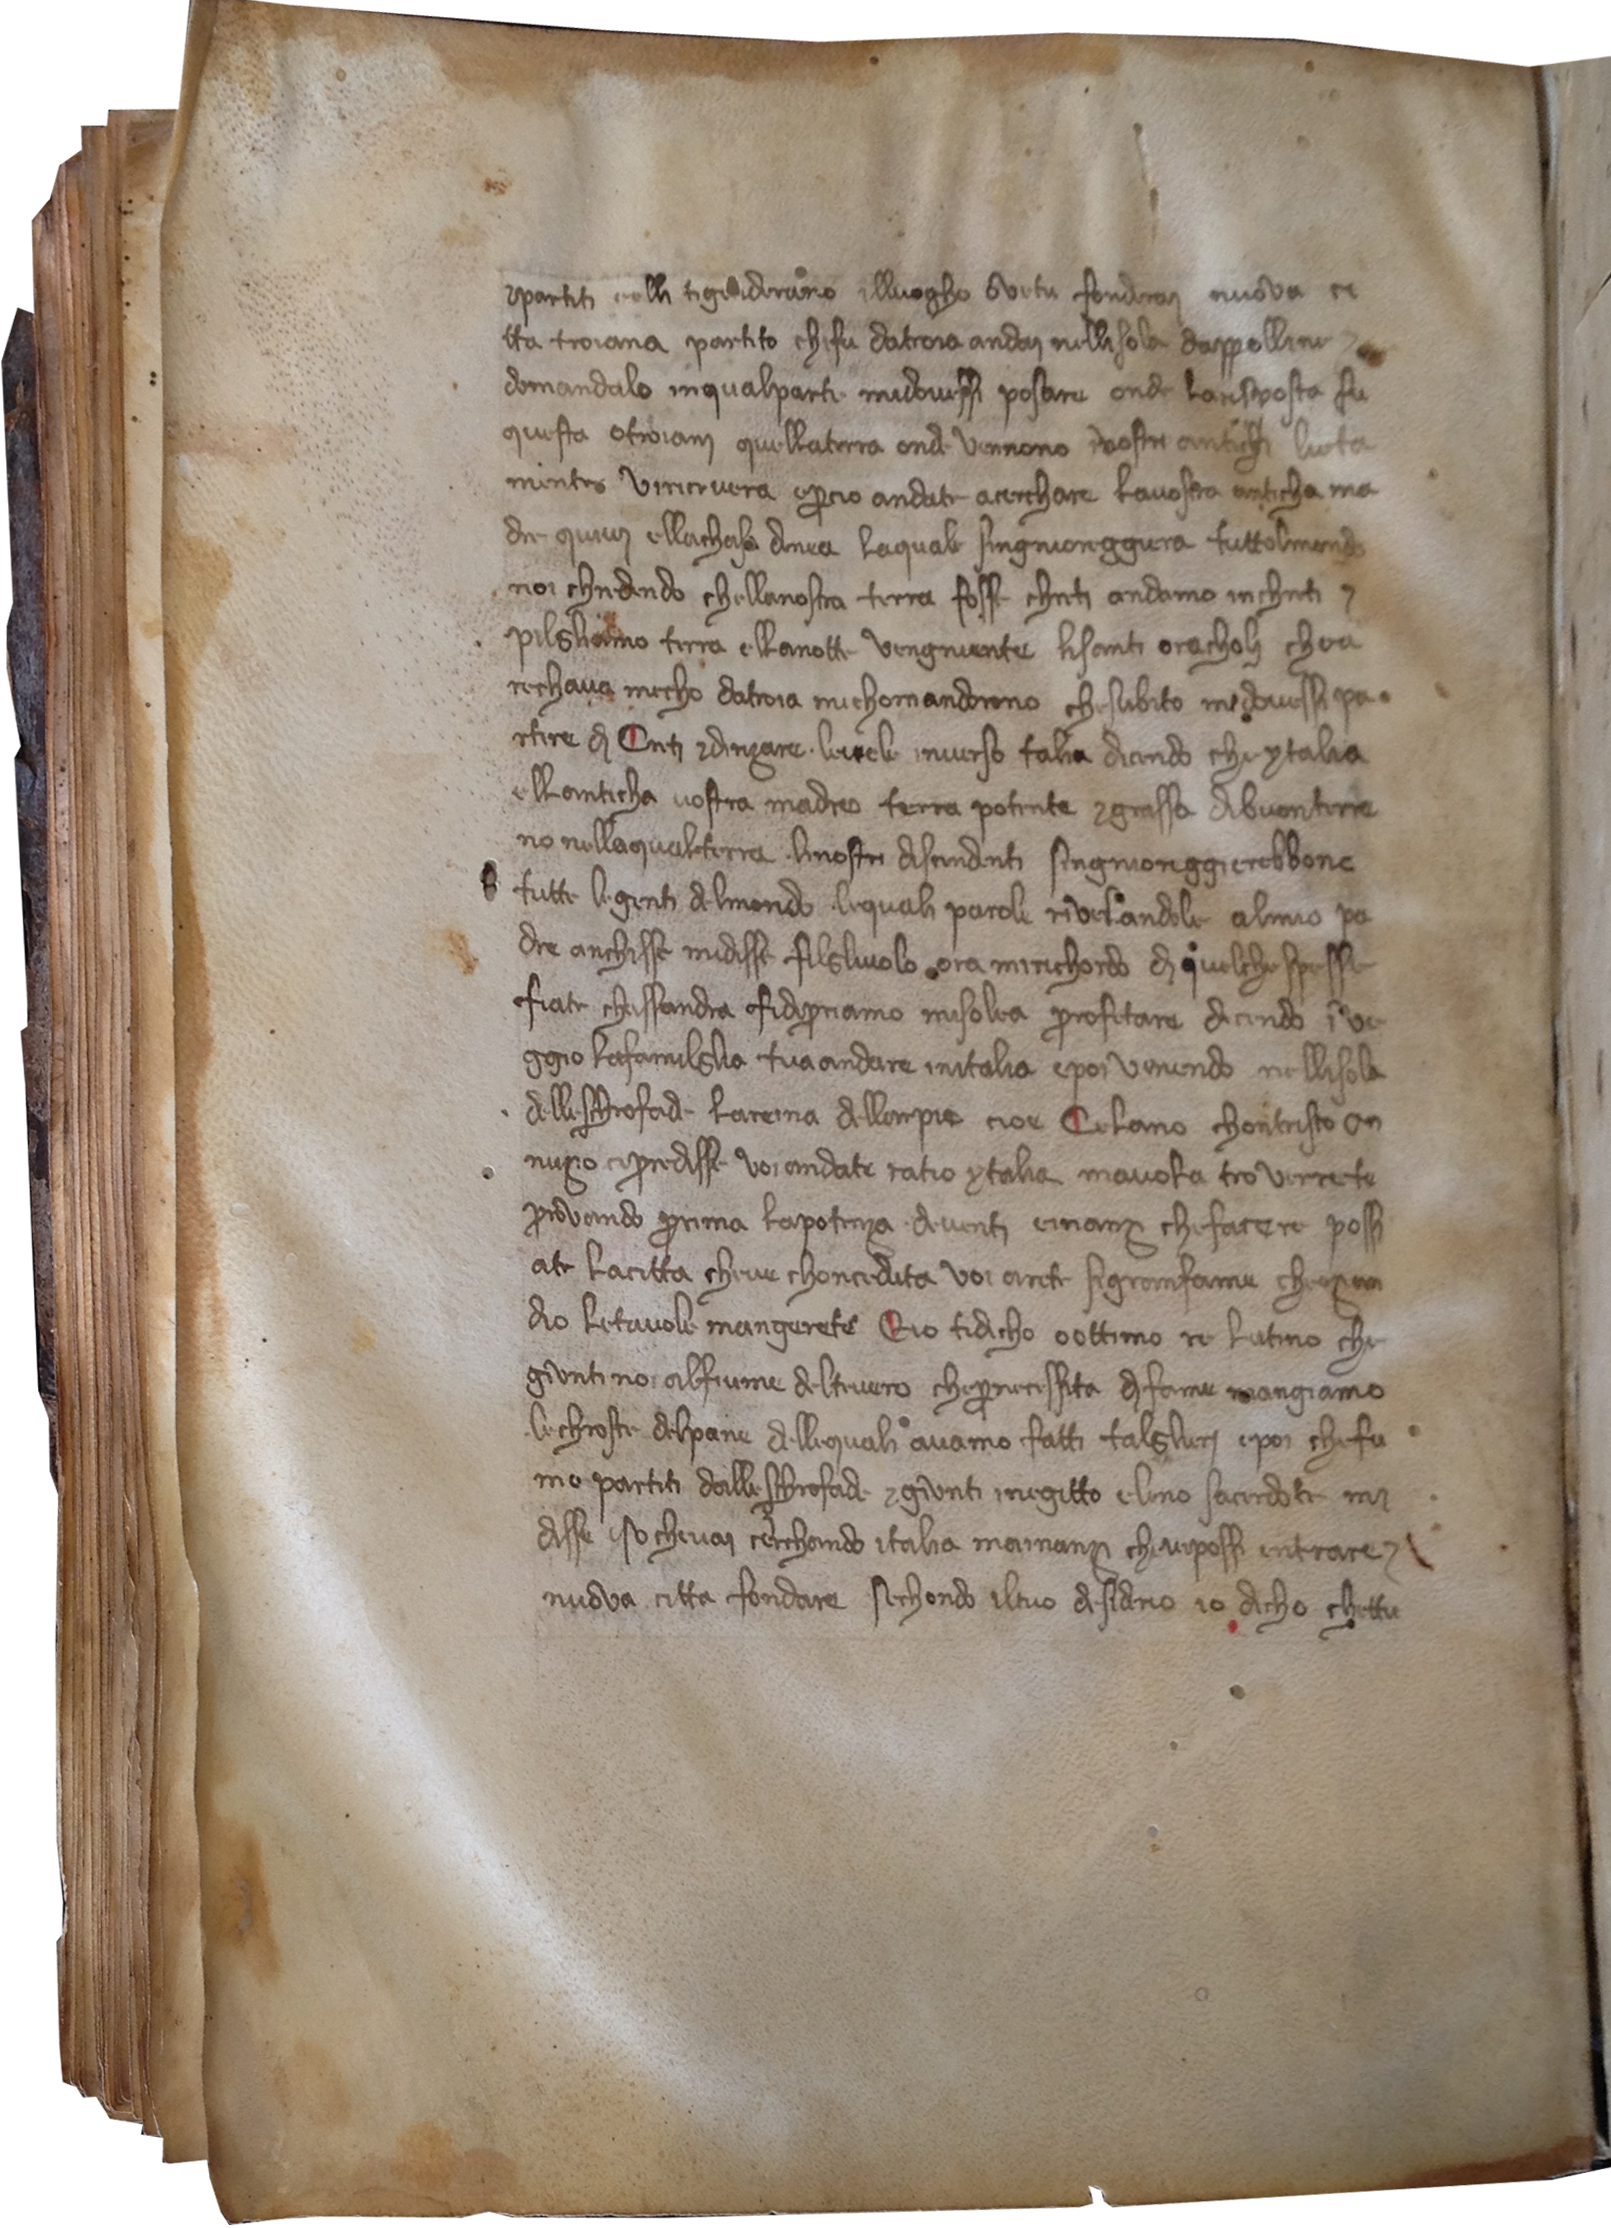 ⁊partiti eelli tiguideranno illuogho ove tu fonderaj nuova ci
tta troiana partito chifu datroia andaj nellisola dappolline ⁊
domandalo inqualparte midovessi posare onde larisposta fu
questa otroianj quellaterra onde vennono ivostri antichi lieta
mente viricievera epcio andate acierchare lavostra anticha ma
dre quivj ellachasa denea laquale singnioreggiera tuttolmondo
noi chredendo chellanostra terra fosse chreti andamo inchreti ⁊
pilgliamo terra ellanotte vengniente lisanti oracholj cheia
rechava mecho datroia michomandorono chesubito midovessi pa
rtire dj Creti ⁊dirizare levele inverso talia dicendo che ytalia
ellanticha vostra madre terra potente ⁊grassa dibuonterre
no nellaqualeterra linostri disciendenti singnioreggierebbono
tutte legienti delmondo lequali parole rivelandole almio pa
dre anchisse midisse filgliuolo ora mirichordo dj quelchespesse
fiate chassandra fidipriamo misolea profetare dicendo i ve
ggio lafamilglia tua andare initalia epoi venendo nellisola
dellestrofade lareina dellarpie cioe Celano chontristo an
nuzio cipredisse voi andate ratio ytalia mavota troverrete
provando prima lapotenza deventi einanzi chefaciere possi
ate lacitta cheve chonciedita voi arete sigranfame che
dio letavole mangierete Eio tidicho oottimo re latino che
giunti noi alfiume deltevero chepnecessita djfame mangiamo
lechroste delpane dellequali avamo fatti talglierj epoi chefu
mo partiti dallestrofade ⁊giunti inegitto eleno sacierdote mj
disse iso chevaj cierchando italia mainanzi chevipossi entrare ⁊
nuova citta fondare sechondo iltuo desiderio io dicho chettu